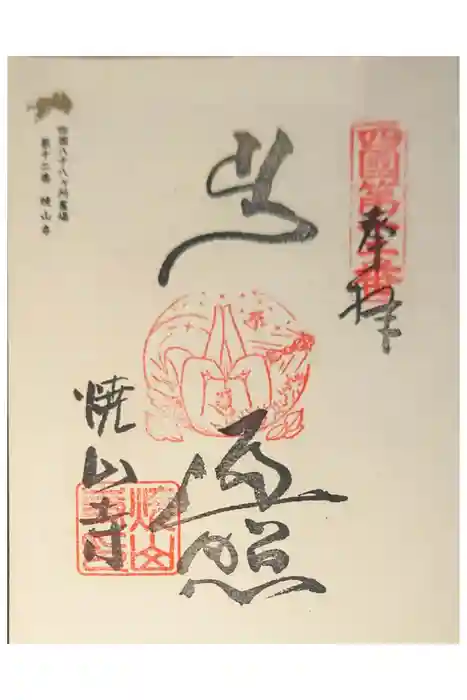 四國第十二番
奉拝
遍照
焼山寺
四国八十八ヶ所霊場
第十二番 焼山寺